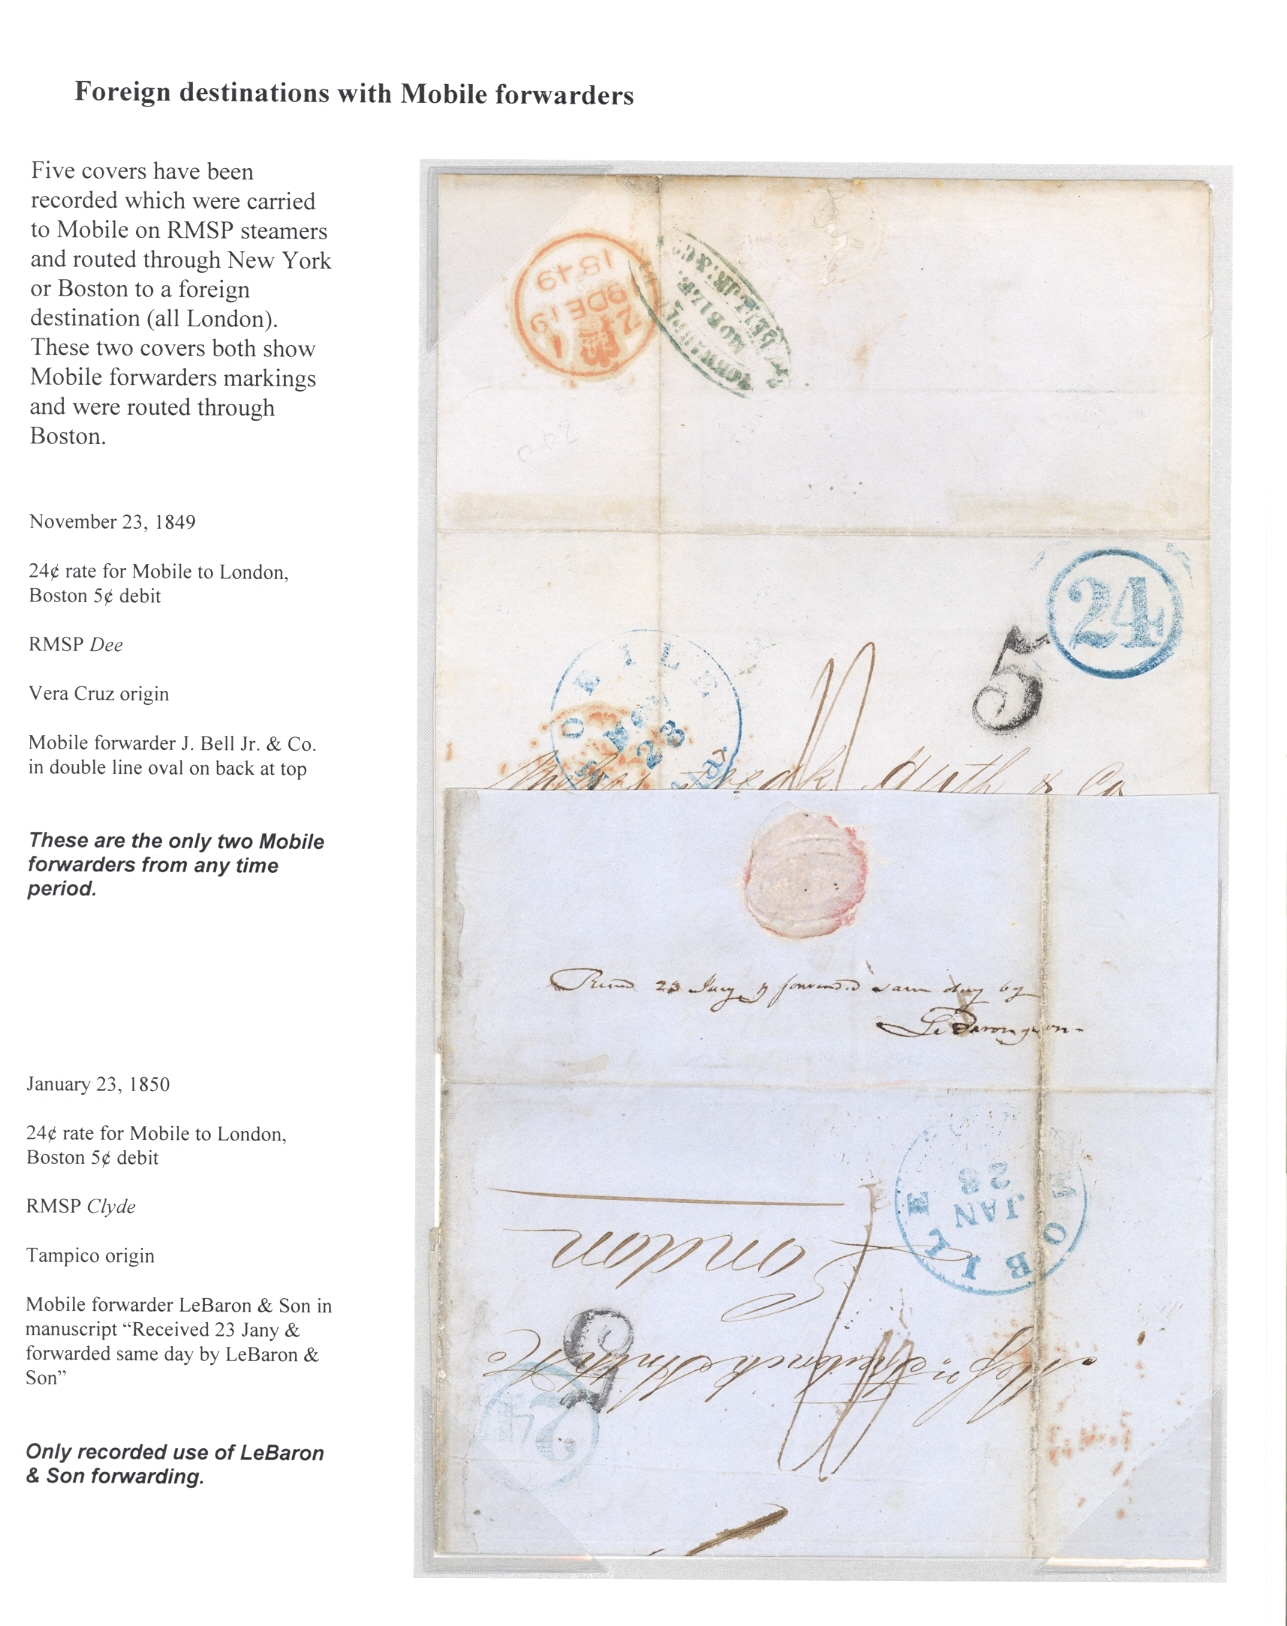 Foreign destinations with Mobile forwarders
Five covers have been
recorded which were carried
to Mobile on RMSP steamers
and routed through New York
or Boston to a foreign
destination (all London).
These two covers both show
Mobile forwarders markings
and were routed through
Boston.
November 23, 1849
24¢ rate for Mobile to London,
Boston 5¢ debit
RMSP Dee
Vera Cruz origin
Mobile forwarder J. Bell Jr. & Co.
in double line oval on back at top
These are the only two Mobile
forwarders from any time
period.
January 23, 1850
24¢ rate for Mobile to London,
Boston 5¢ debit
RMSP Clyde
Tampico origin
Mobile forwarder LeBaron & Son in
manuscript “Received 23 Jany &
forwarded same day by LeBaron &
Son”
Only recorded use of LeBaron
& Son forwarding.
19DE19
1849
MOBILE
BELL JR. & CO
24
5
MOBILE
NOV
23
Huth & Co
23 Jany & forwarded same day by
LeBaron & Son
MOBILE
JAN
28
London
5
24